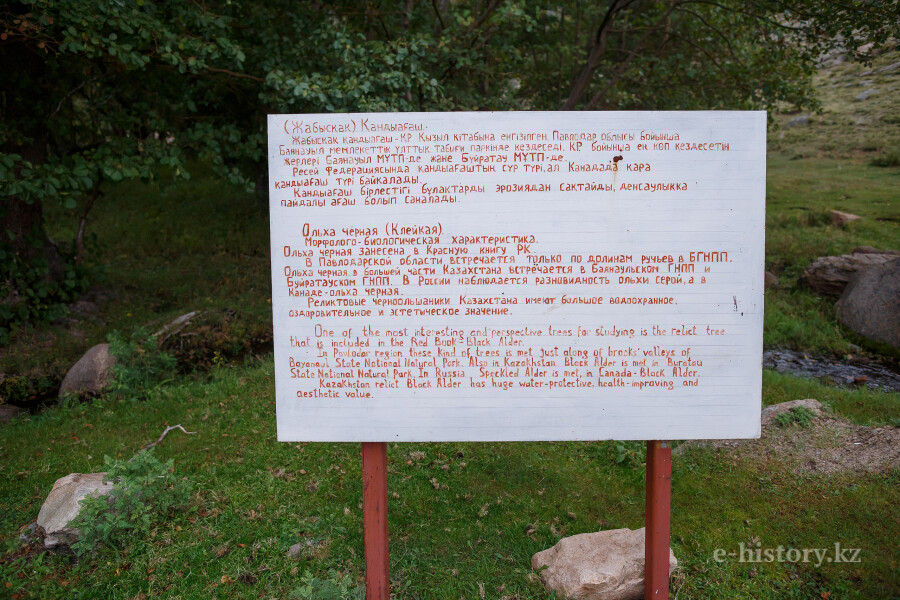 (Жабысқақ) Қандыағаш.
Жабысқақ қандыағаш-ҚР Қызыл кітабына енгізілген. Павлодар облысы бойынша
Баянауыл мемлекеттік ұлттық табиғи паркінде кездеседі. ҚР бойынша ең көп кездесетін
жерлері Баянауыл МҰТП-де және Бұйратау МҰТП-де.
Ресей Федерациясында қандыағаштың сұр түрі, ал Канадада қара
қандыағаш түрі байқалады.
Қандыағаш бірлестігі бұлақтарды эрозиядан сақтайды, денсаулыққа
пайдалы ағаш болып саналады.
Ольха чёрная (Клейкая)
Морфолого-биологическая характеристика.
Ольха чёрная занесена в Красную книгу РК.
В Павлодарской области встречается только по долинам ручьев в БГНПП.
Ольха чёрная в большей части Казахстана встречается в Баянаульском ГНПП и
Буйратауском ГНПП. В России наблюдается разновидность ольхи серой, а в
Канаде-ольха чёрная.
Реликтовые черноольшаники Казахстана имеют большое водоохранное,
оздоровительное и эстетическое значение.
One of the most interesting and perspective trees for studying is the relict tree
that is included in the Red Book-Black Alder.
In Pavlodar region these kind of trees is met just along of brooks' valleys of
Bayanaul State National Natural Park. Also in Kazakhstan Black Alder is met in Buratau
State National Natural Park. In Russia Speckled Alder is met, in Canada-Black Alder.
Kazakhstan relict Black Alder has huge water-protective, health-improving and
aesthetic value.
e-history.kz